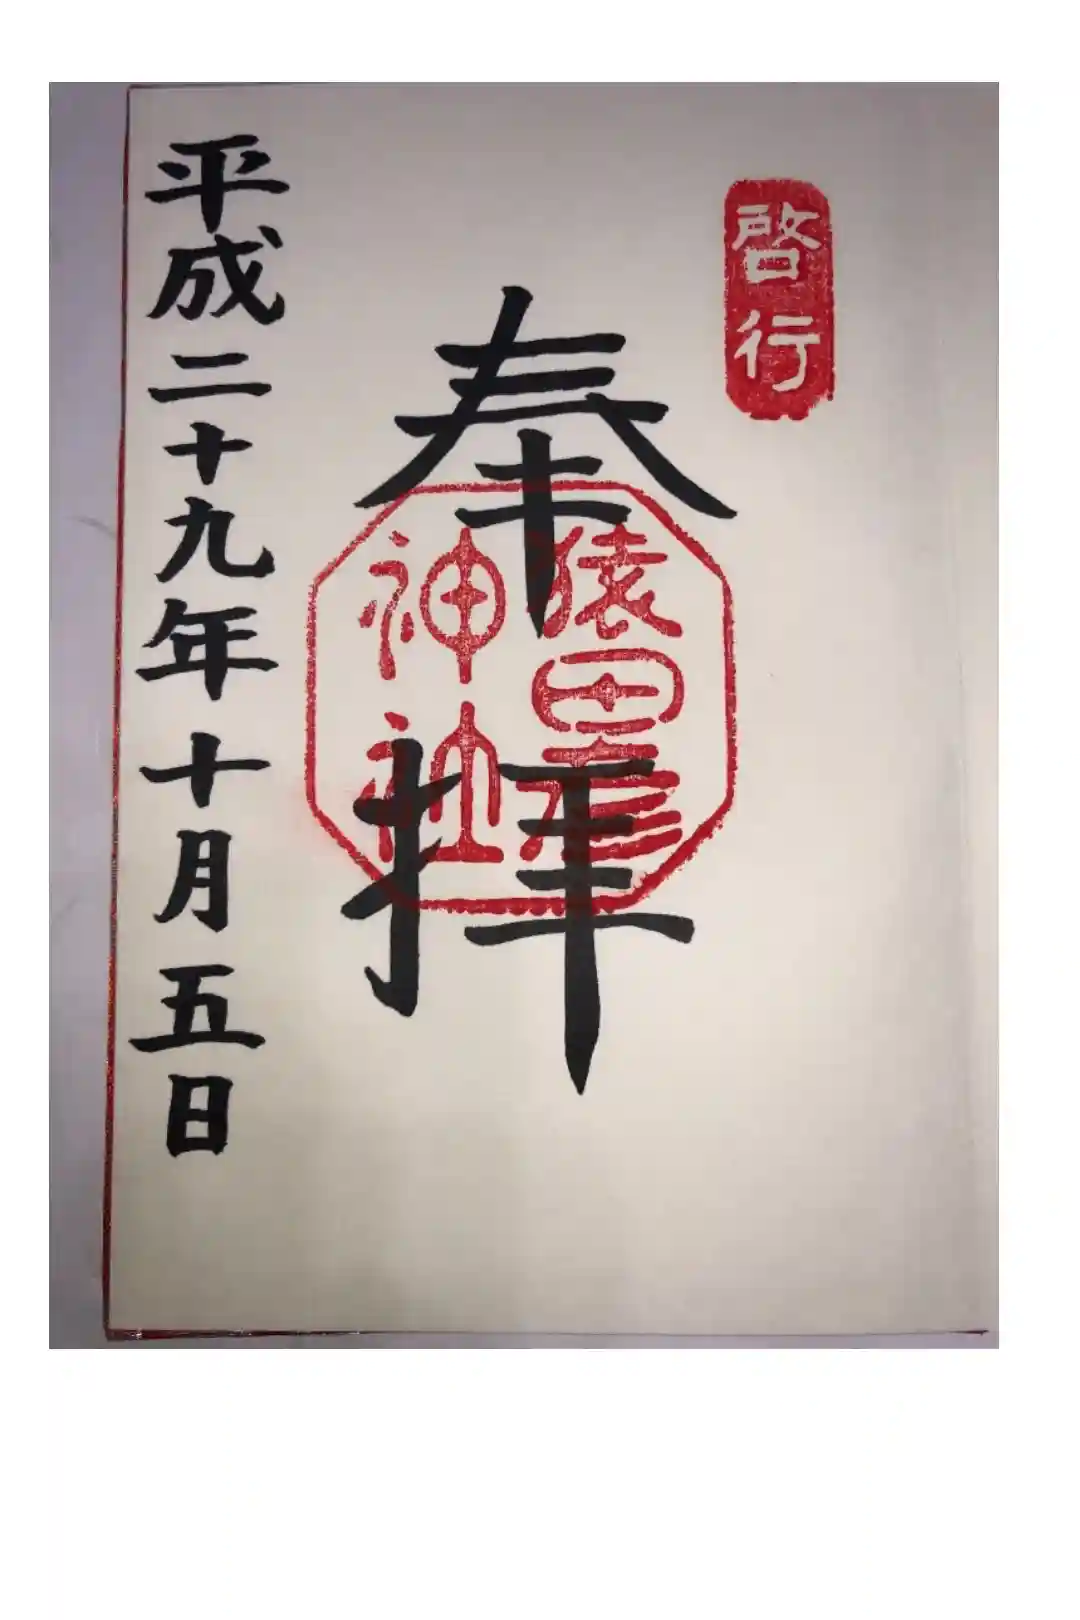 啓行
奉拝
猿田彦
神社
平成二十九年十月五日